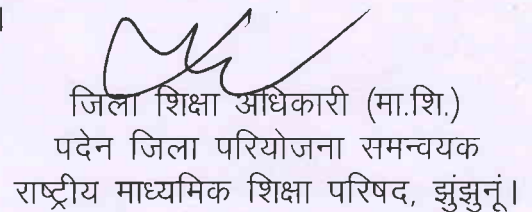 जिला शिक्षा अधिकारी (मा.शि.)
पदेन जिला परियोजना समन्वयक
राष्ट्रीय माध्यमिक शिक्षा परिषद, झुंझुनूं।